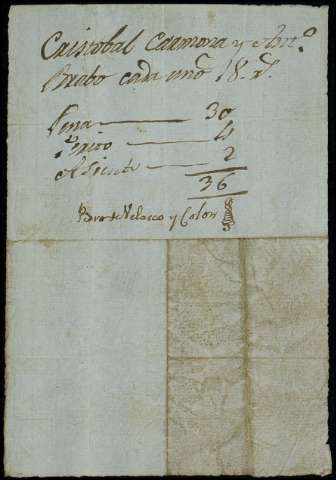 Cristobal Carmona y Ant.º
Brabo cada uno 18. r.ˢ
Pena 30
4
2
36
Velasco y Colon